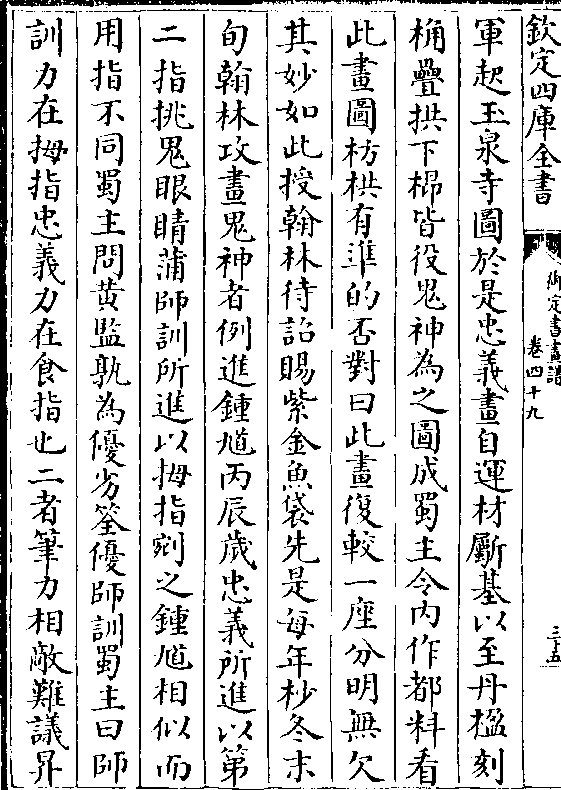 欽定四庫全書
御定書畫譜
卷四十九
三十五
軍起玉泉寺圖於是忠義畫自運材斸基以至丹楹刻
桷疊拱下棉皆役鬼神為之圖成蜀主令内作都料看
此畫圖枋栱有準的否對曰此畫復較一座分明無欠
其妙如此授翰林待詔賜紫金魚袋先是每年杪冬末
旬翰林攻畫鬼神者例進鍾馗丙辰歲忠義所進以第
二指挑鬼眼睛蒲師訓所進以拇指剜之鍾馗相似而
用指不同蜀主問黄筌孰為優劣筌優師訓蜀主曰師
訓力在拇指忠義力在食指也二者筆力相敵難議昇